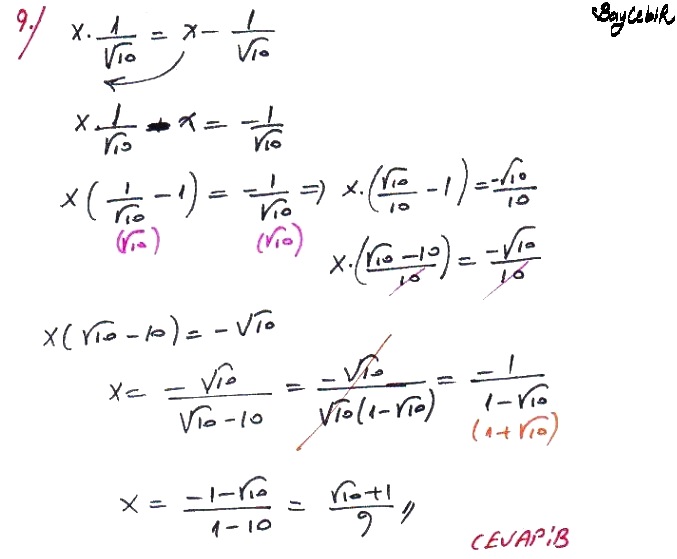 BayCebiR
9./ x · 1/√10 = x - 1/√10
x · 1/√10 - x = -1/√10
x(1/√10 - 1) = -1/√10 ⇒ x · (√10/10 - 1) = -√10/10
(√10) (√10)
x · (√10 - 10/10) = -√10/10
x(√10 - 10) = -√10
x = -√10/√10 - 10 = -√10/√10(1 - √10) = -1/1 - √10
(1 + √10)
x = -1 - √10/1 - 10 = √10 + 1/9 //
CEVAP:B